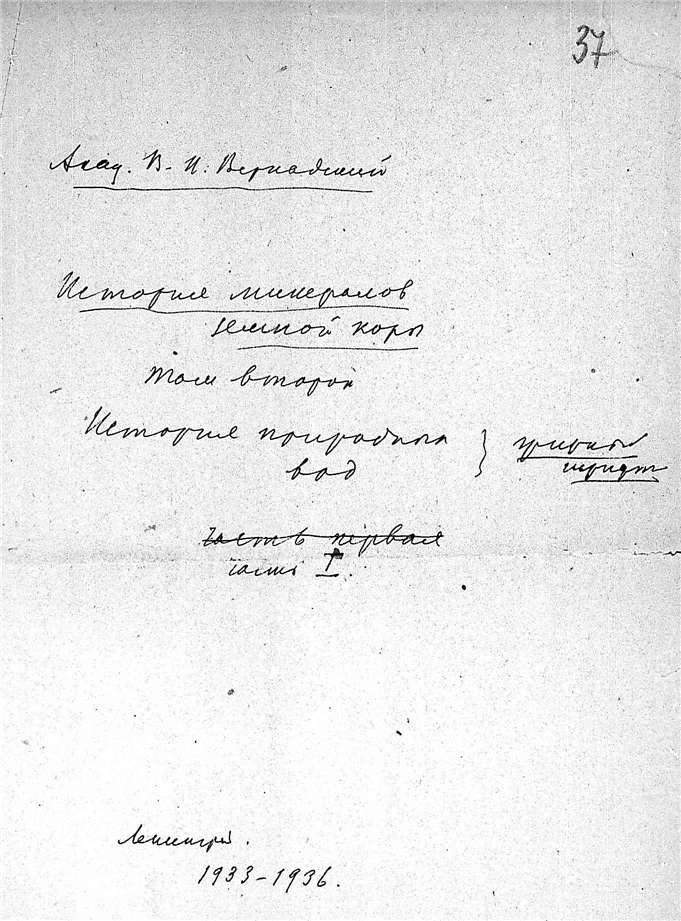 37
Акад. В. И. Вернадский
История минералов
земной коры
Том второй
История природных } жирный
вод шрифт
Часть первая
часть I.
Ленинград.
1933–1936.